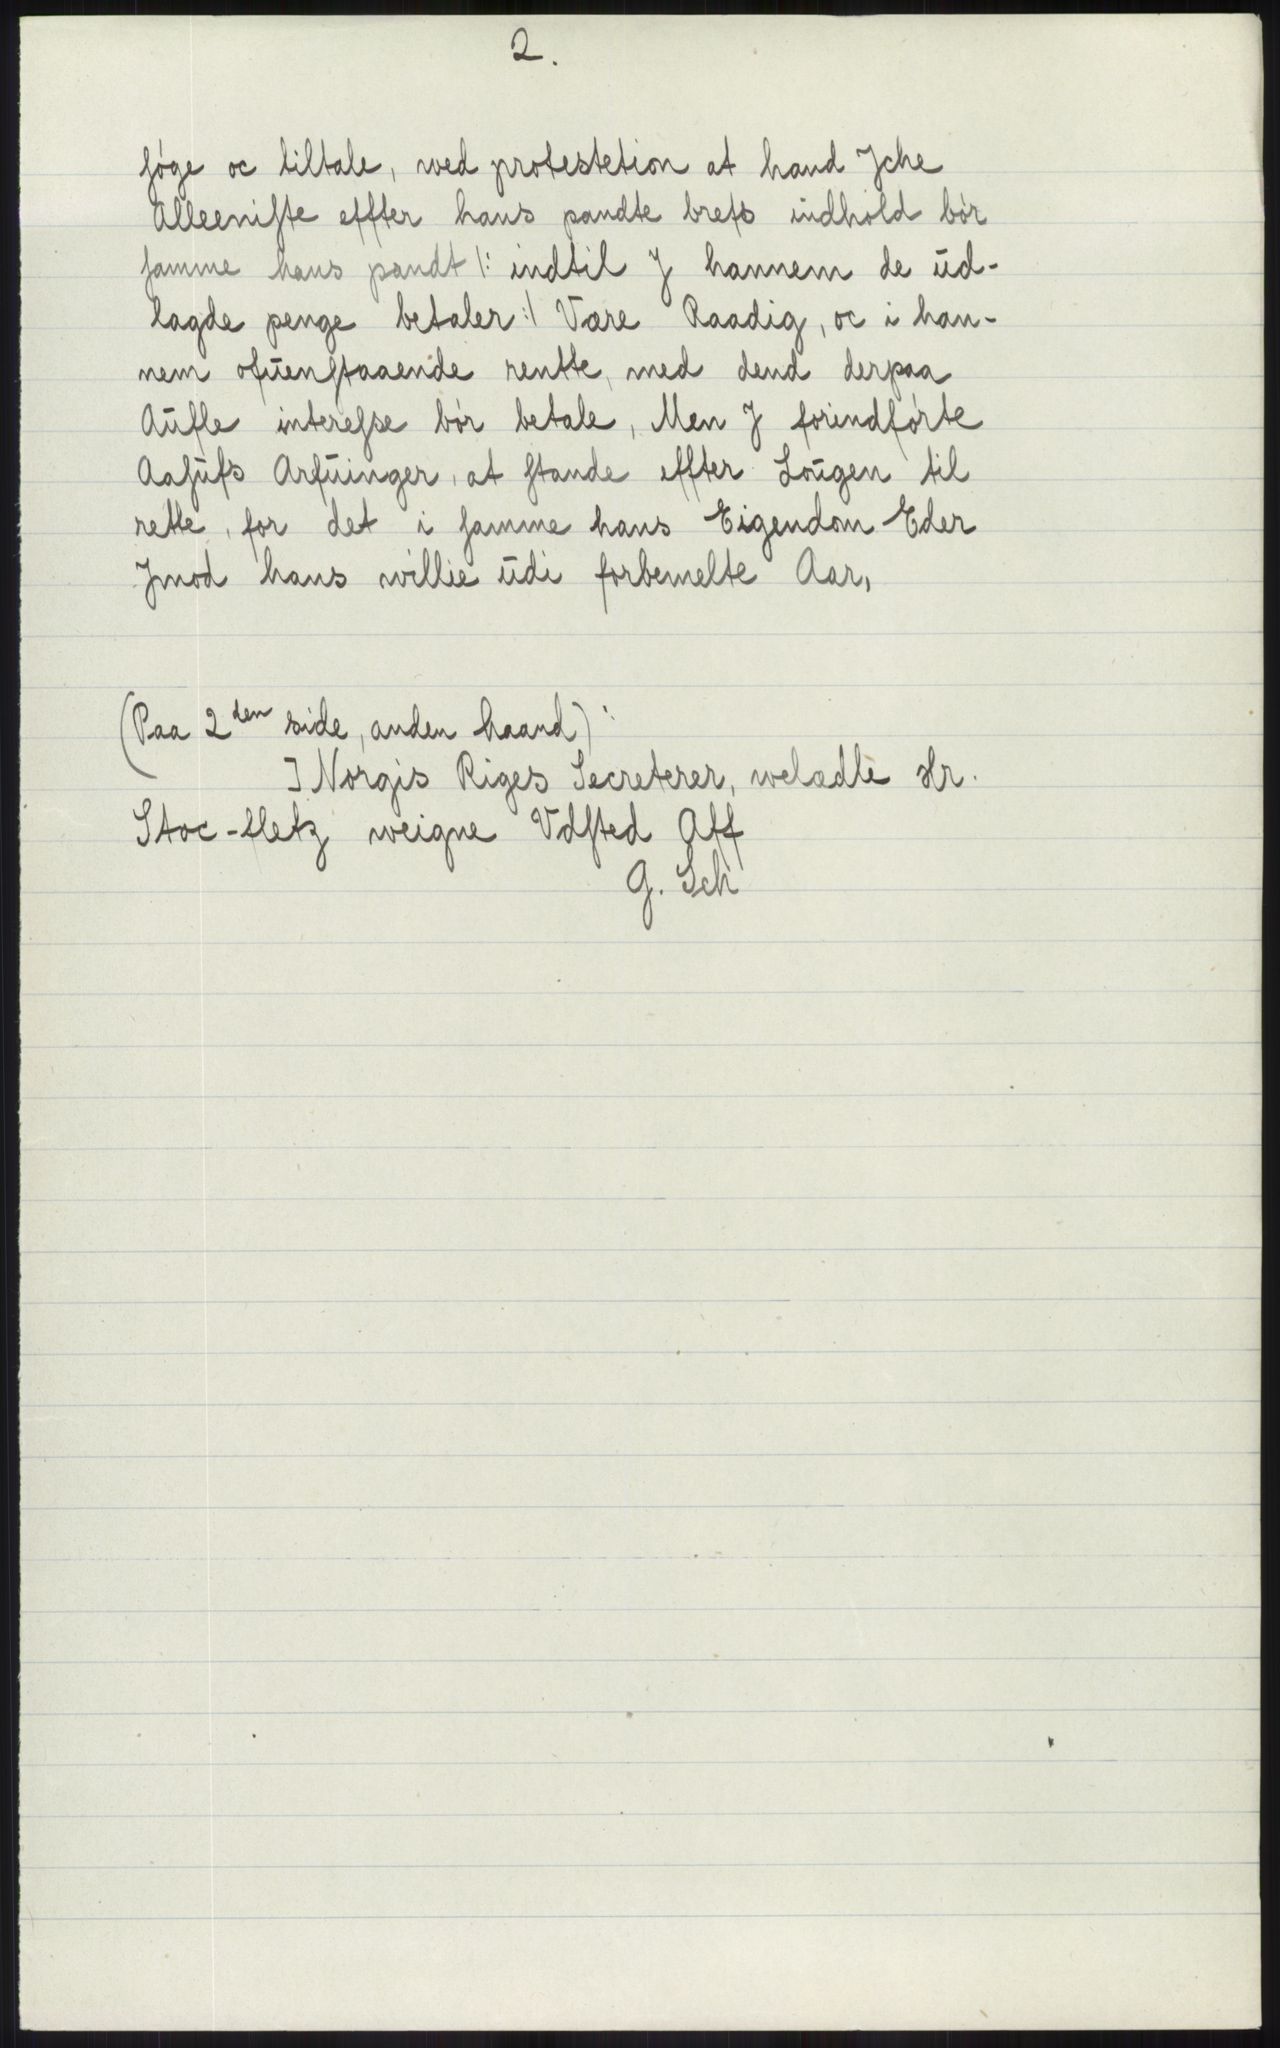 2.
søge oc tiltale, wed protestetion at hand Jche
Alleeniste effter hans pandte brefs indhold bør
samme hans pandt |: indtil J hannem de ūd-
lagde penge betaler :| Være Raadig, oc i han-
nem ofūenstaaende rentte, med dend derpaa
Aūfle interesse bør betale, Men J forindførte
Aasūfs Arfūinger, at stande effter Loūgen til
rette, for det i samme hans Eigendom Eder
Jmod hans willie ūdi forbemelte Aar,
(Paa 2den side, anden haand):
J Norgis Riges Secreterer, welædle Hr.
Stoc-fletz weigne Vdsted Aff
G. Sch